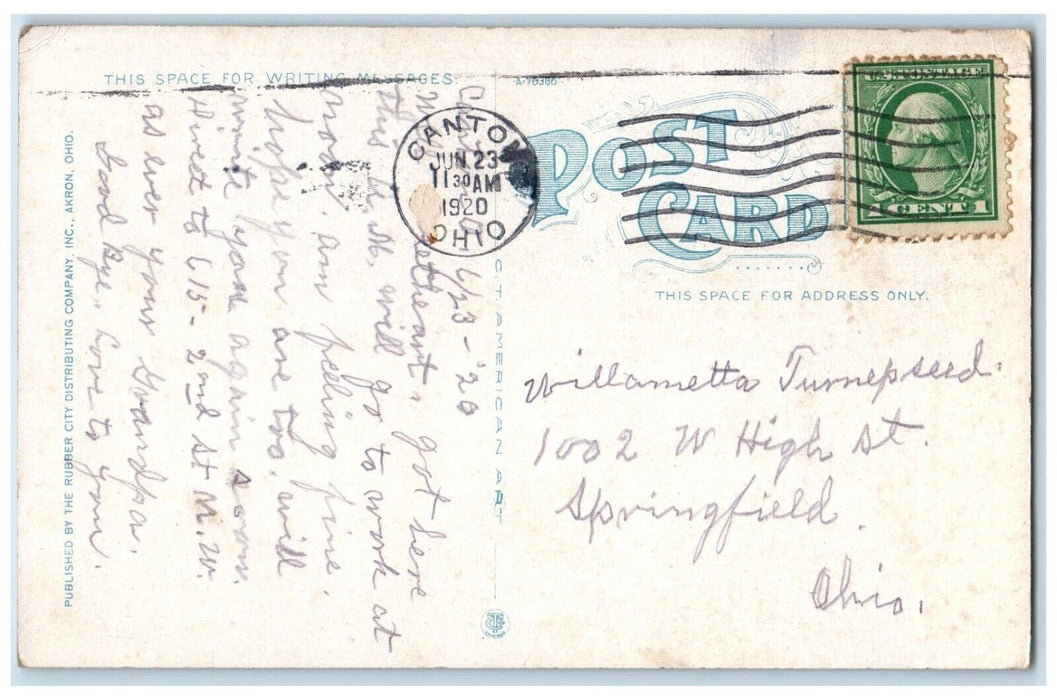 THIS SPACE FOR WRITING MESSAGES.
A-90386
POST
CARD
THIS SPACE FOR ADDRESS ONLY.
CANTON
JUN 23
11 30 AM
1920
OHIO
U.S. POSTAGE
1 CENT 1
6/23-'20
got here
this A.M. will go to work at
noon, am feeling fine.
hope you are too. will
write you again soon.
Direct to 615-2nd St. N.W.
as ever your Grandpa.
Good Bye, Love to you.
Willametta Turnepseed.
1002 W High St.
Springfield.
Ohio.
PUBLISHED BY THE RUBBER CITY DISTRIBUTING COMPANY, INC., AKRON, OHIO.
C.T. AMERICAN ART